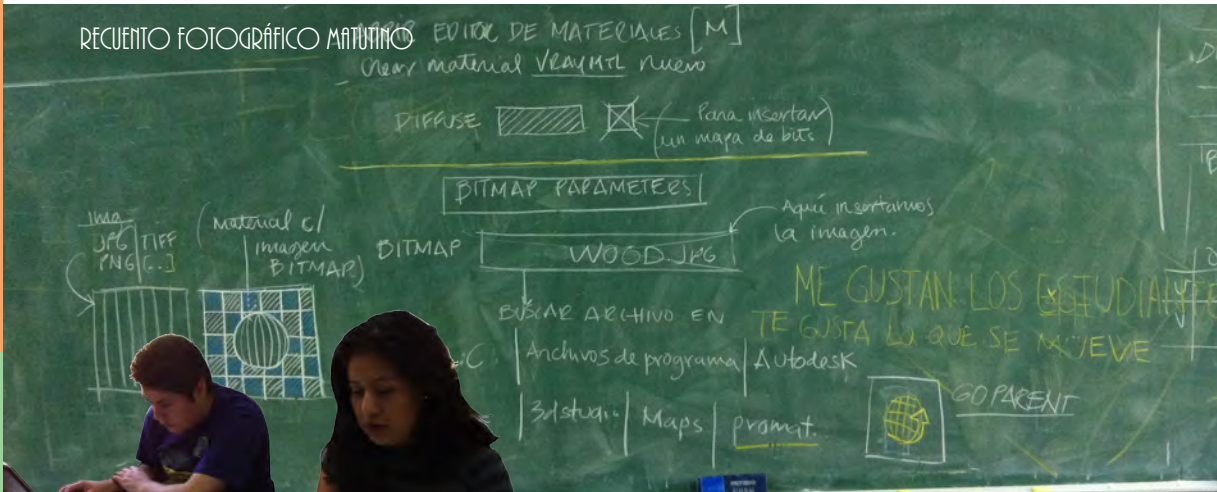 RECUENTO FOTOGRÁFICO MATUTINO
EDITOR DE MATERIALES [M]
Crear material VRAYMTL nuevo
DIFFUSE
Para insertar
un mapa de bits
BITMAP PARAMETERS
Aquí insertamos
la imagen.
JPG TIFF
PNG [..]
(Material c/
imagen
BITMAP)
BITMAP WOOD.JPG
BUSCAR ARCHIVO EN
C: Archivos de programa Autodesk
3dstudio Maps promat.
ME GUSTAN LOS ESTUDIANTE
TE GUSTA LO QUE SE MUEVE
GO PARENT